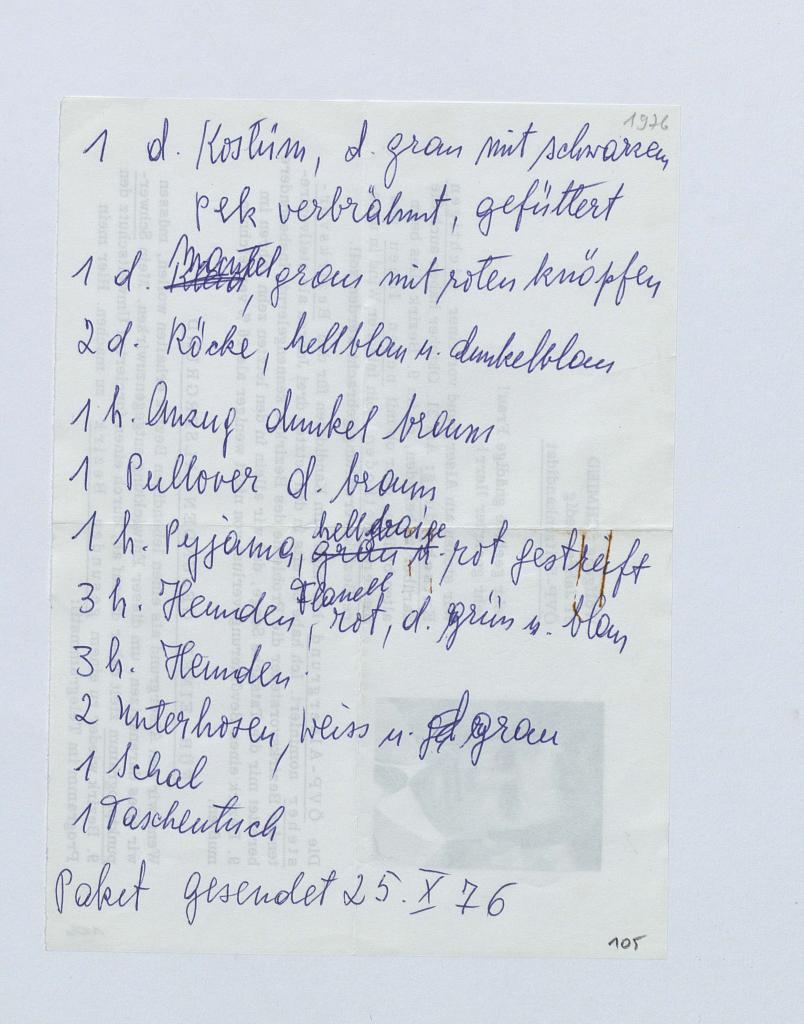 1976
1 d. Kostüm, d. grau mit schwarzem
pelz verbrähmt, gefüttert
1 d. Mantel, grau mit roten knöpfen
2 d. Röcke, hellblau u. dunkelblau
1 h. Anzug dunkel braun
1 Pullover d. braun
1 h. Pyjama, hell draige rot gestreift
3 h. Hemden, Flanell rot, d. grün u. blau
3 h. Hemden.
2 Unterhosen, weiss u. grau
1 Schal
1 Taschentuch
Paket gesendet 25. X 76
105